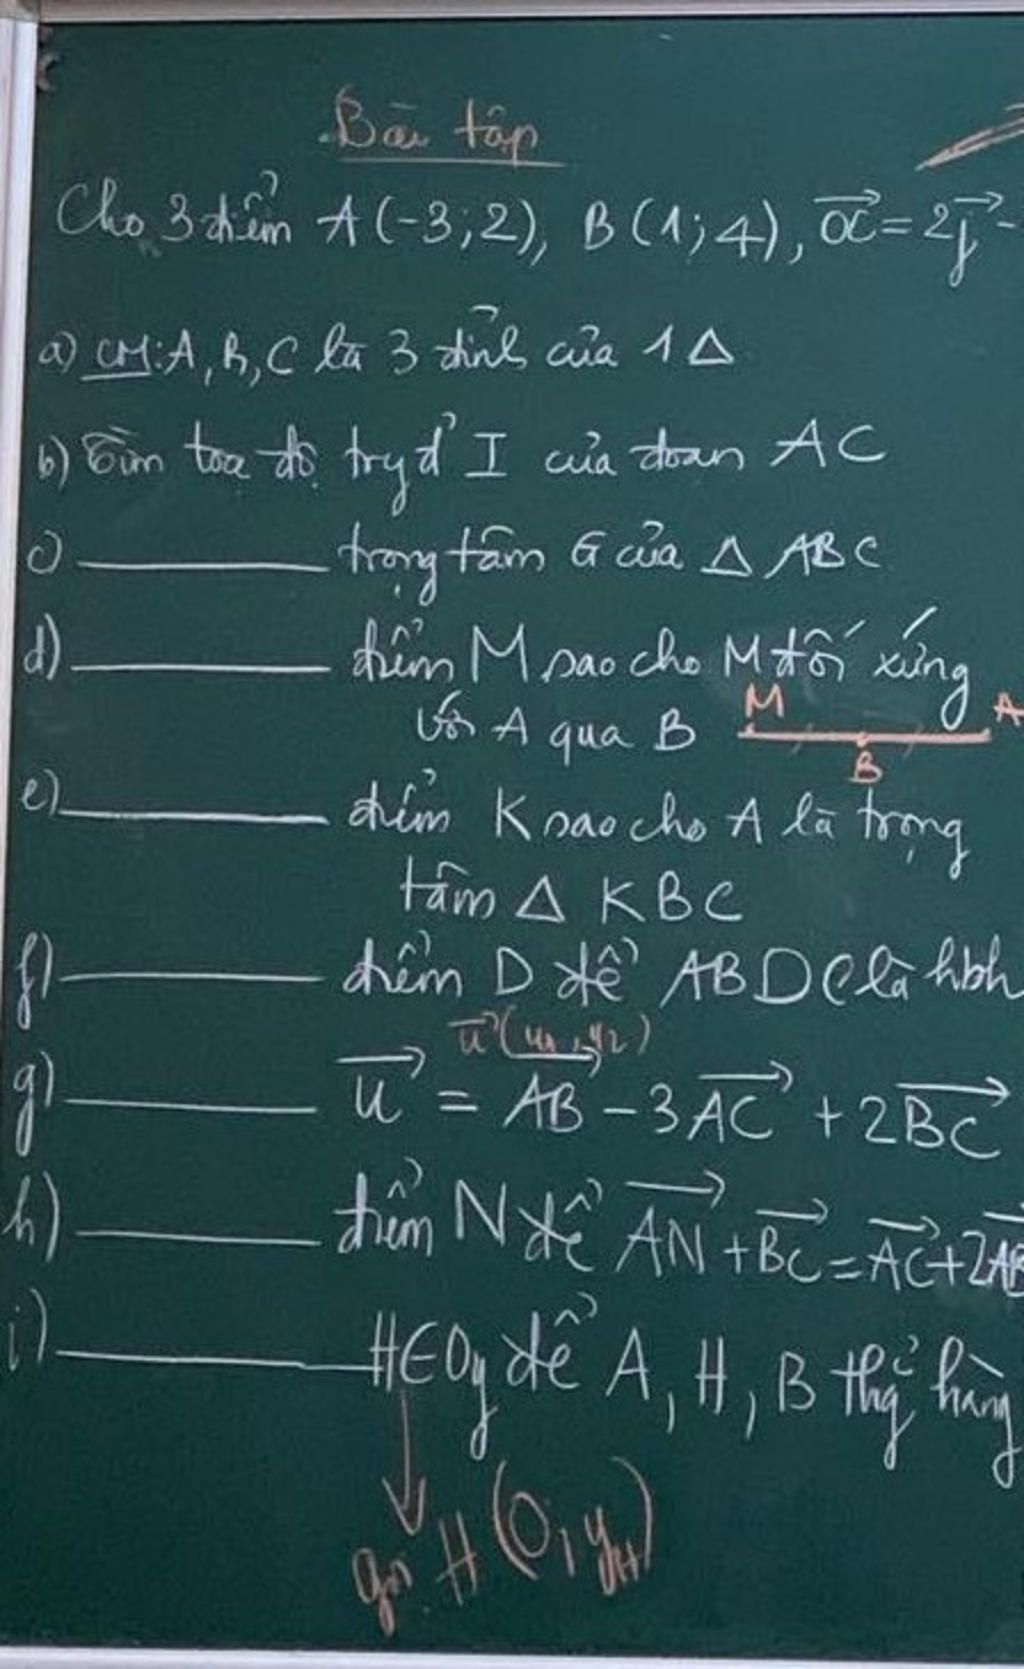 Bài tập
Cho 3 điểm A(-3;2), B(1;4), OC = 2j -
a) CM: A, B, C là 3 đỉnh của 1 Δ
b) Tìm toạ độ trgđ I của đoạn AC
c) ______ trọng tâm G của Δ ABC
d) ______ điểm M sao cho M đối xứng
với A qua B
M A
B
e) ______ điểm K sao cho A là trọng
tâm Δ KBC
f) ______ điểm D để ABDC là hbh
u(u1, u2)
g) ______ u = AB - 3AC + 2BC
h) ______ điểm N để AN + BC = AC + 2AB
i) ______ H∈Oy để A, H, B thg hàng
gọi H(0; yH)